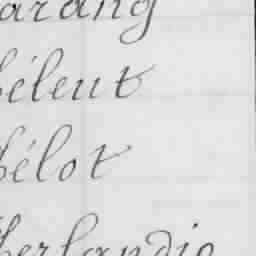 arang
béleut
bélot
berlandio